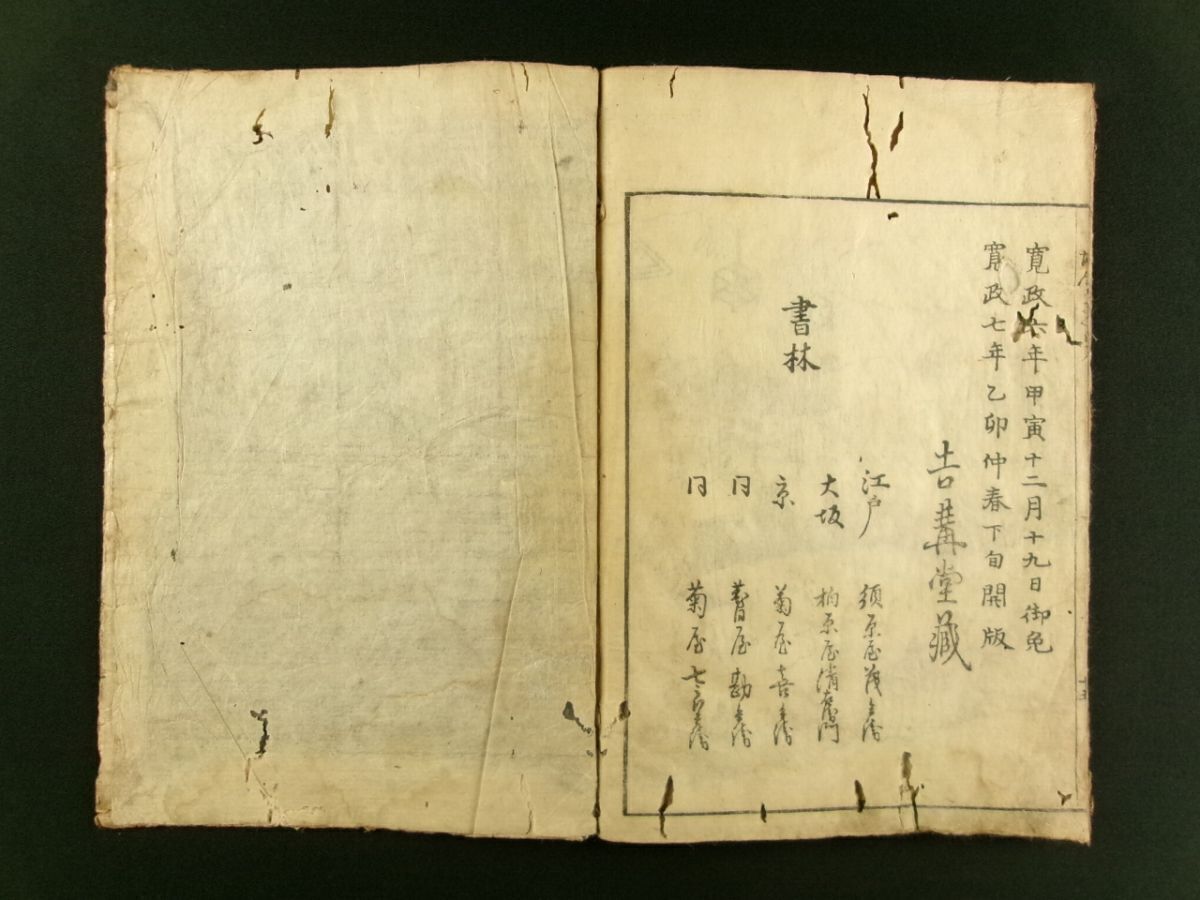 寛政六年甲寅十二月十九日御免
寛政七年乙卯仲春下旬開版
吉冓堂藏
書林
江戸 須原屋茂兵衛
大坂 柏原屋清右衛門
京 菊屋喜兵衛
同 蓍屋勘兵衛
同 菊屋七郎兵衛